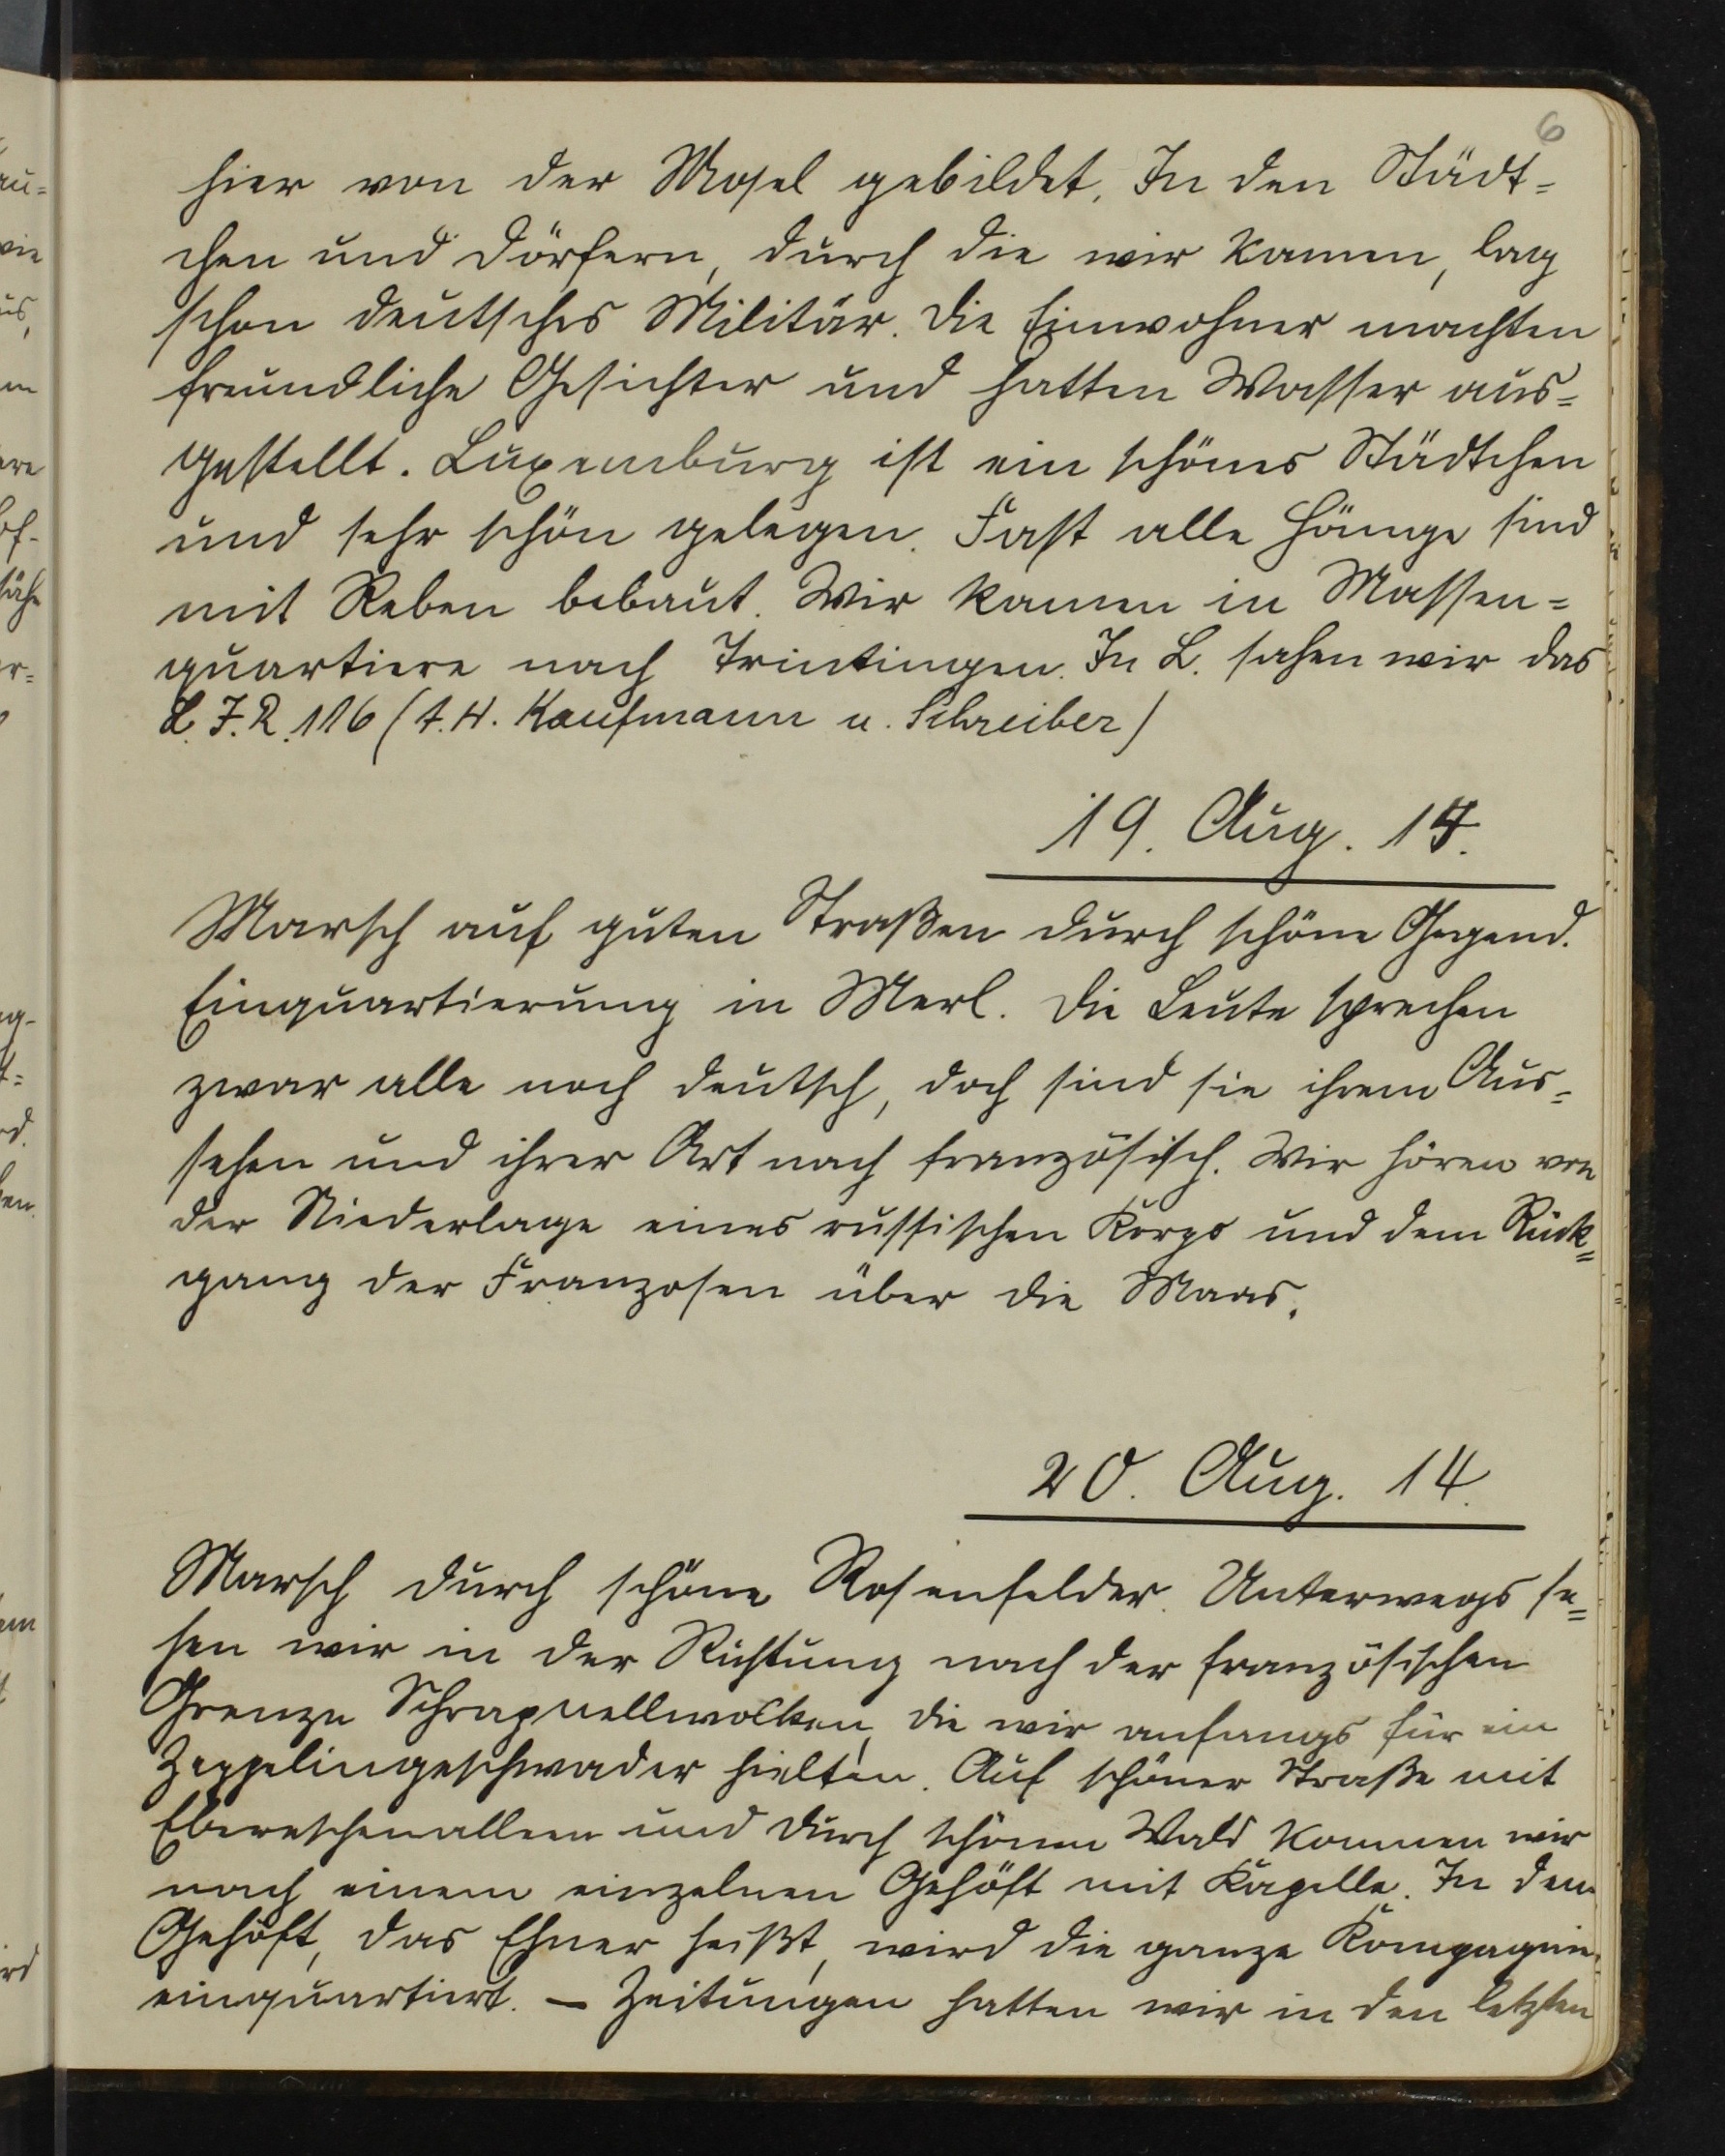 6
hier von der Mosel gebildet. In den Städt=
chen und Dörfern, durch die wir kamen, lag
schon deutsches Militär. Die Einwohner machten
freundliche Gesichter und hatten Wasser aus=
gestellt. Luxemburg ist ein schönes Städtchen
und sehr schön gelegen. Fast alle Hänge sind
mit Reben bebaut. Wir kamen in Massen=
quartiere nach Trintingen. In L. sahen wir das
L.I.R. 116 (A.H. Kaufmann u. Schreiber)
19. Aug. 14.
Marsch auf guten Straßen durch schöne Gegend.
Einquartierung in Merl. Die Leute sprechen
zwar alle noch deutsch, doch sind sie ihrem Aus=
sehen und ihrer Art nach französisch. Wir hören von
der Niederlage eines russischen Korps und dem Rück=
gang der Franzosen über die Maas.
20. Aug. 14.
Marsch durch schöne Rosenfelder. Unterwegs se=
hen wir in der Richtung nach der französischen
Grenze Schrapnellwolken, die wir anfangs für ein
Zeppelingeschwader hielten. Auf schöner Straße mit
Ebereschenalleen und durch schönen Wald kommen wir
nach einem einzelnen Gehöft mit Kapelle. In dem
Gehöft, das Ehner heißt, wird die ganze Kompagnie
einquartiert. — Zeitungen hatten wir in den letzten